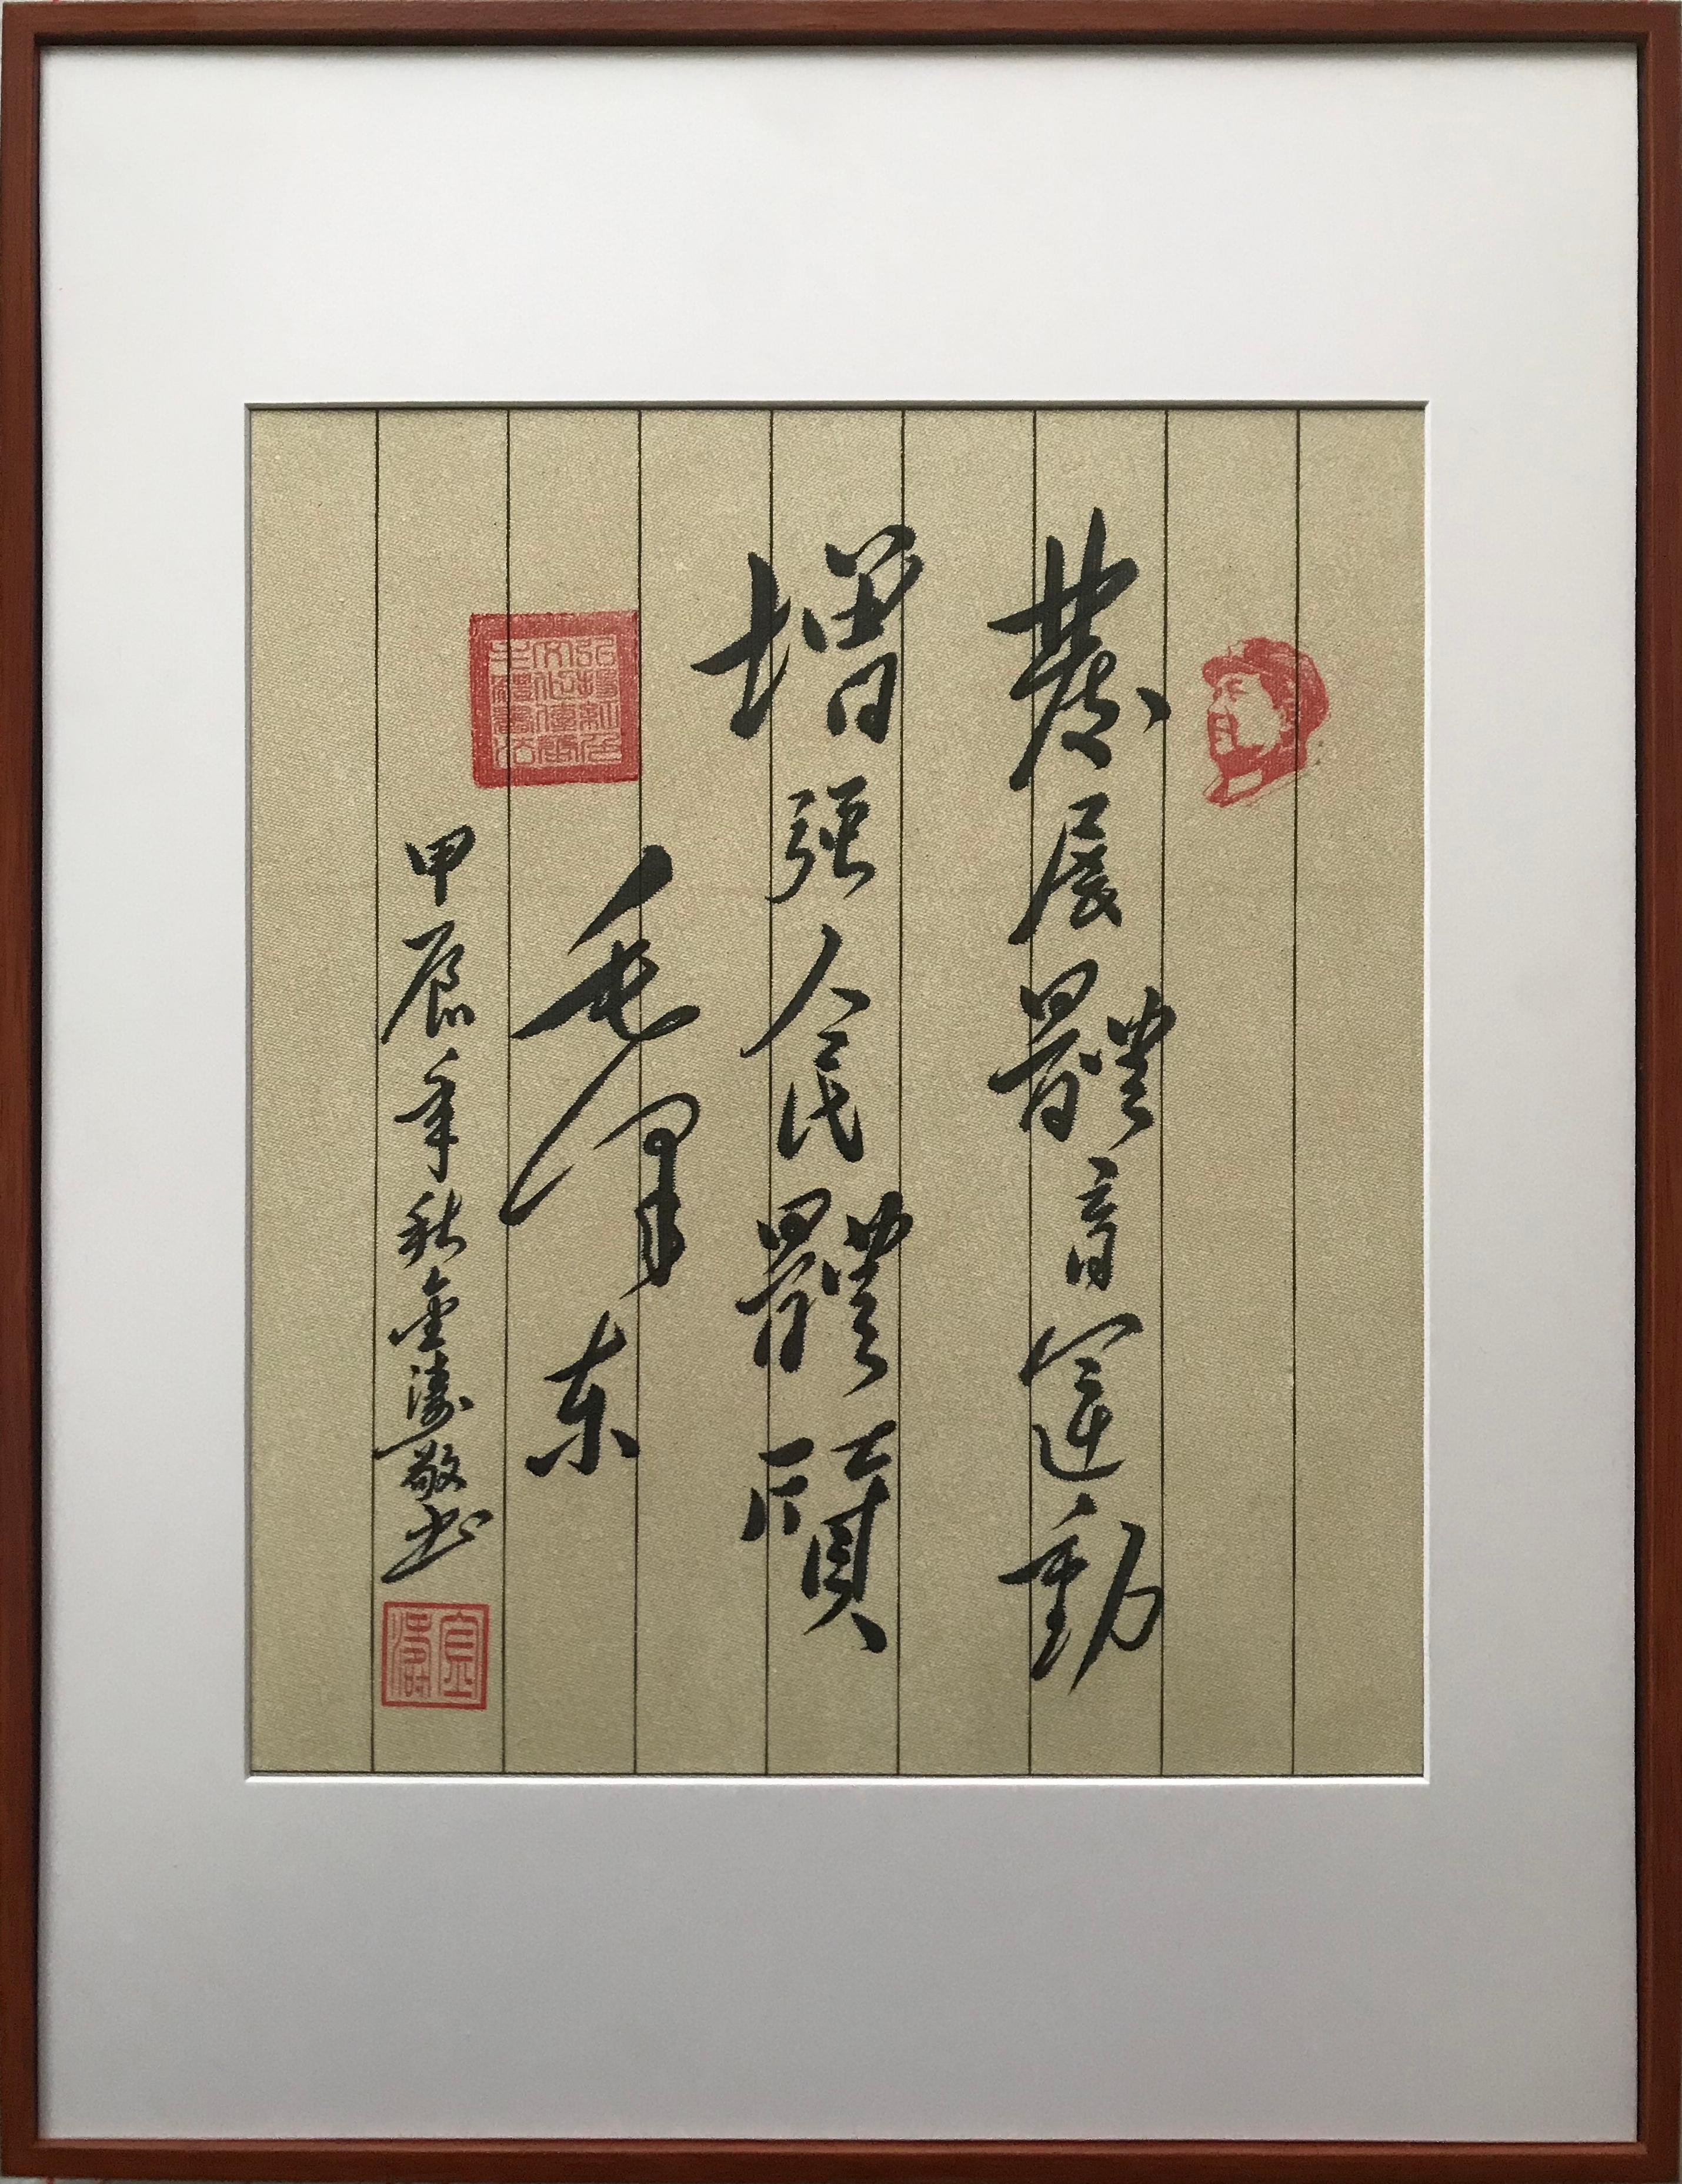 發展體育運動
增强人民體質
毛泽东
甲辰年秋金濤敬书
金濤